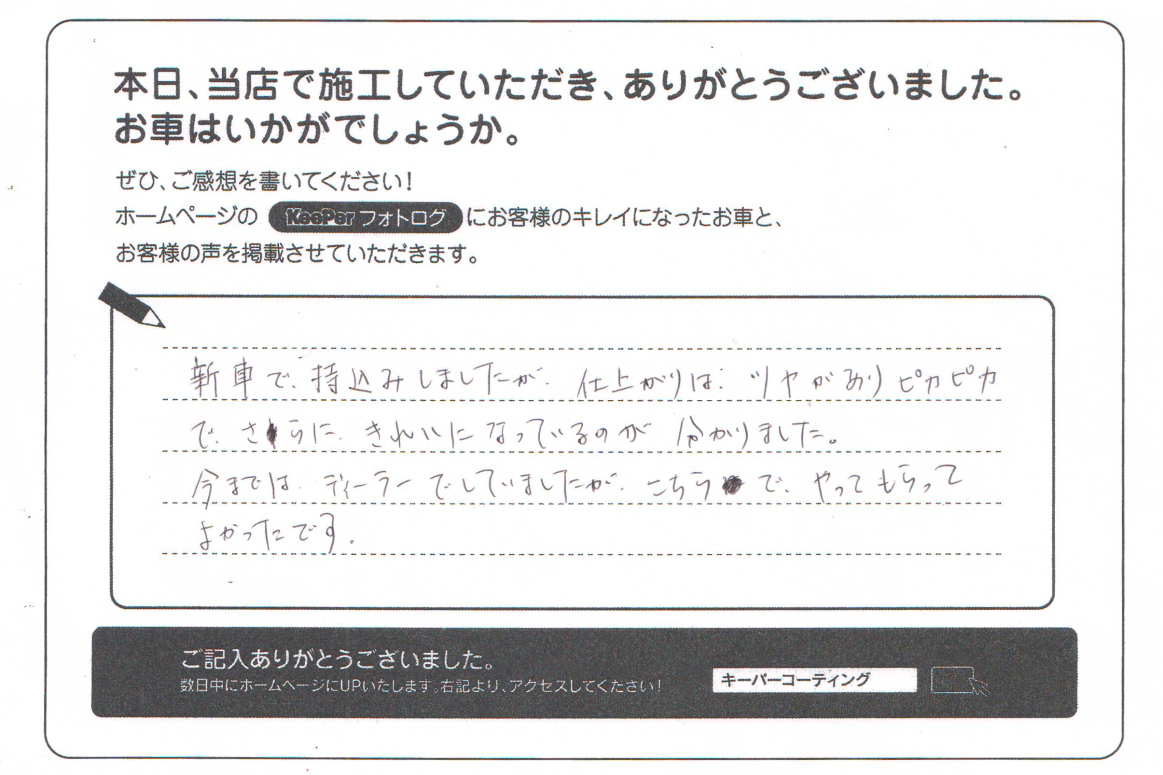 本日、当店で施工していただき、ありがとうございました。
お車はいかがでしょうか。
ぜひ、ご感想を書いてください！
ホームページの KeePer フォトログ にお客様のキレイになったお車と、
お客様の声を掲載させていただきます。
新車で、持込みしましたが、仕上がりは、ツヤがありピカピカ
で、さらに、きれいになっているのが分かりました。
今までは、ディーラーでしていましたが、こちらで、やってもらって
よかったです。
ご記入ありがとうございました。
数日中にホームページにUPいたします。右記より、アクセスしてください！
キーパーコーティング